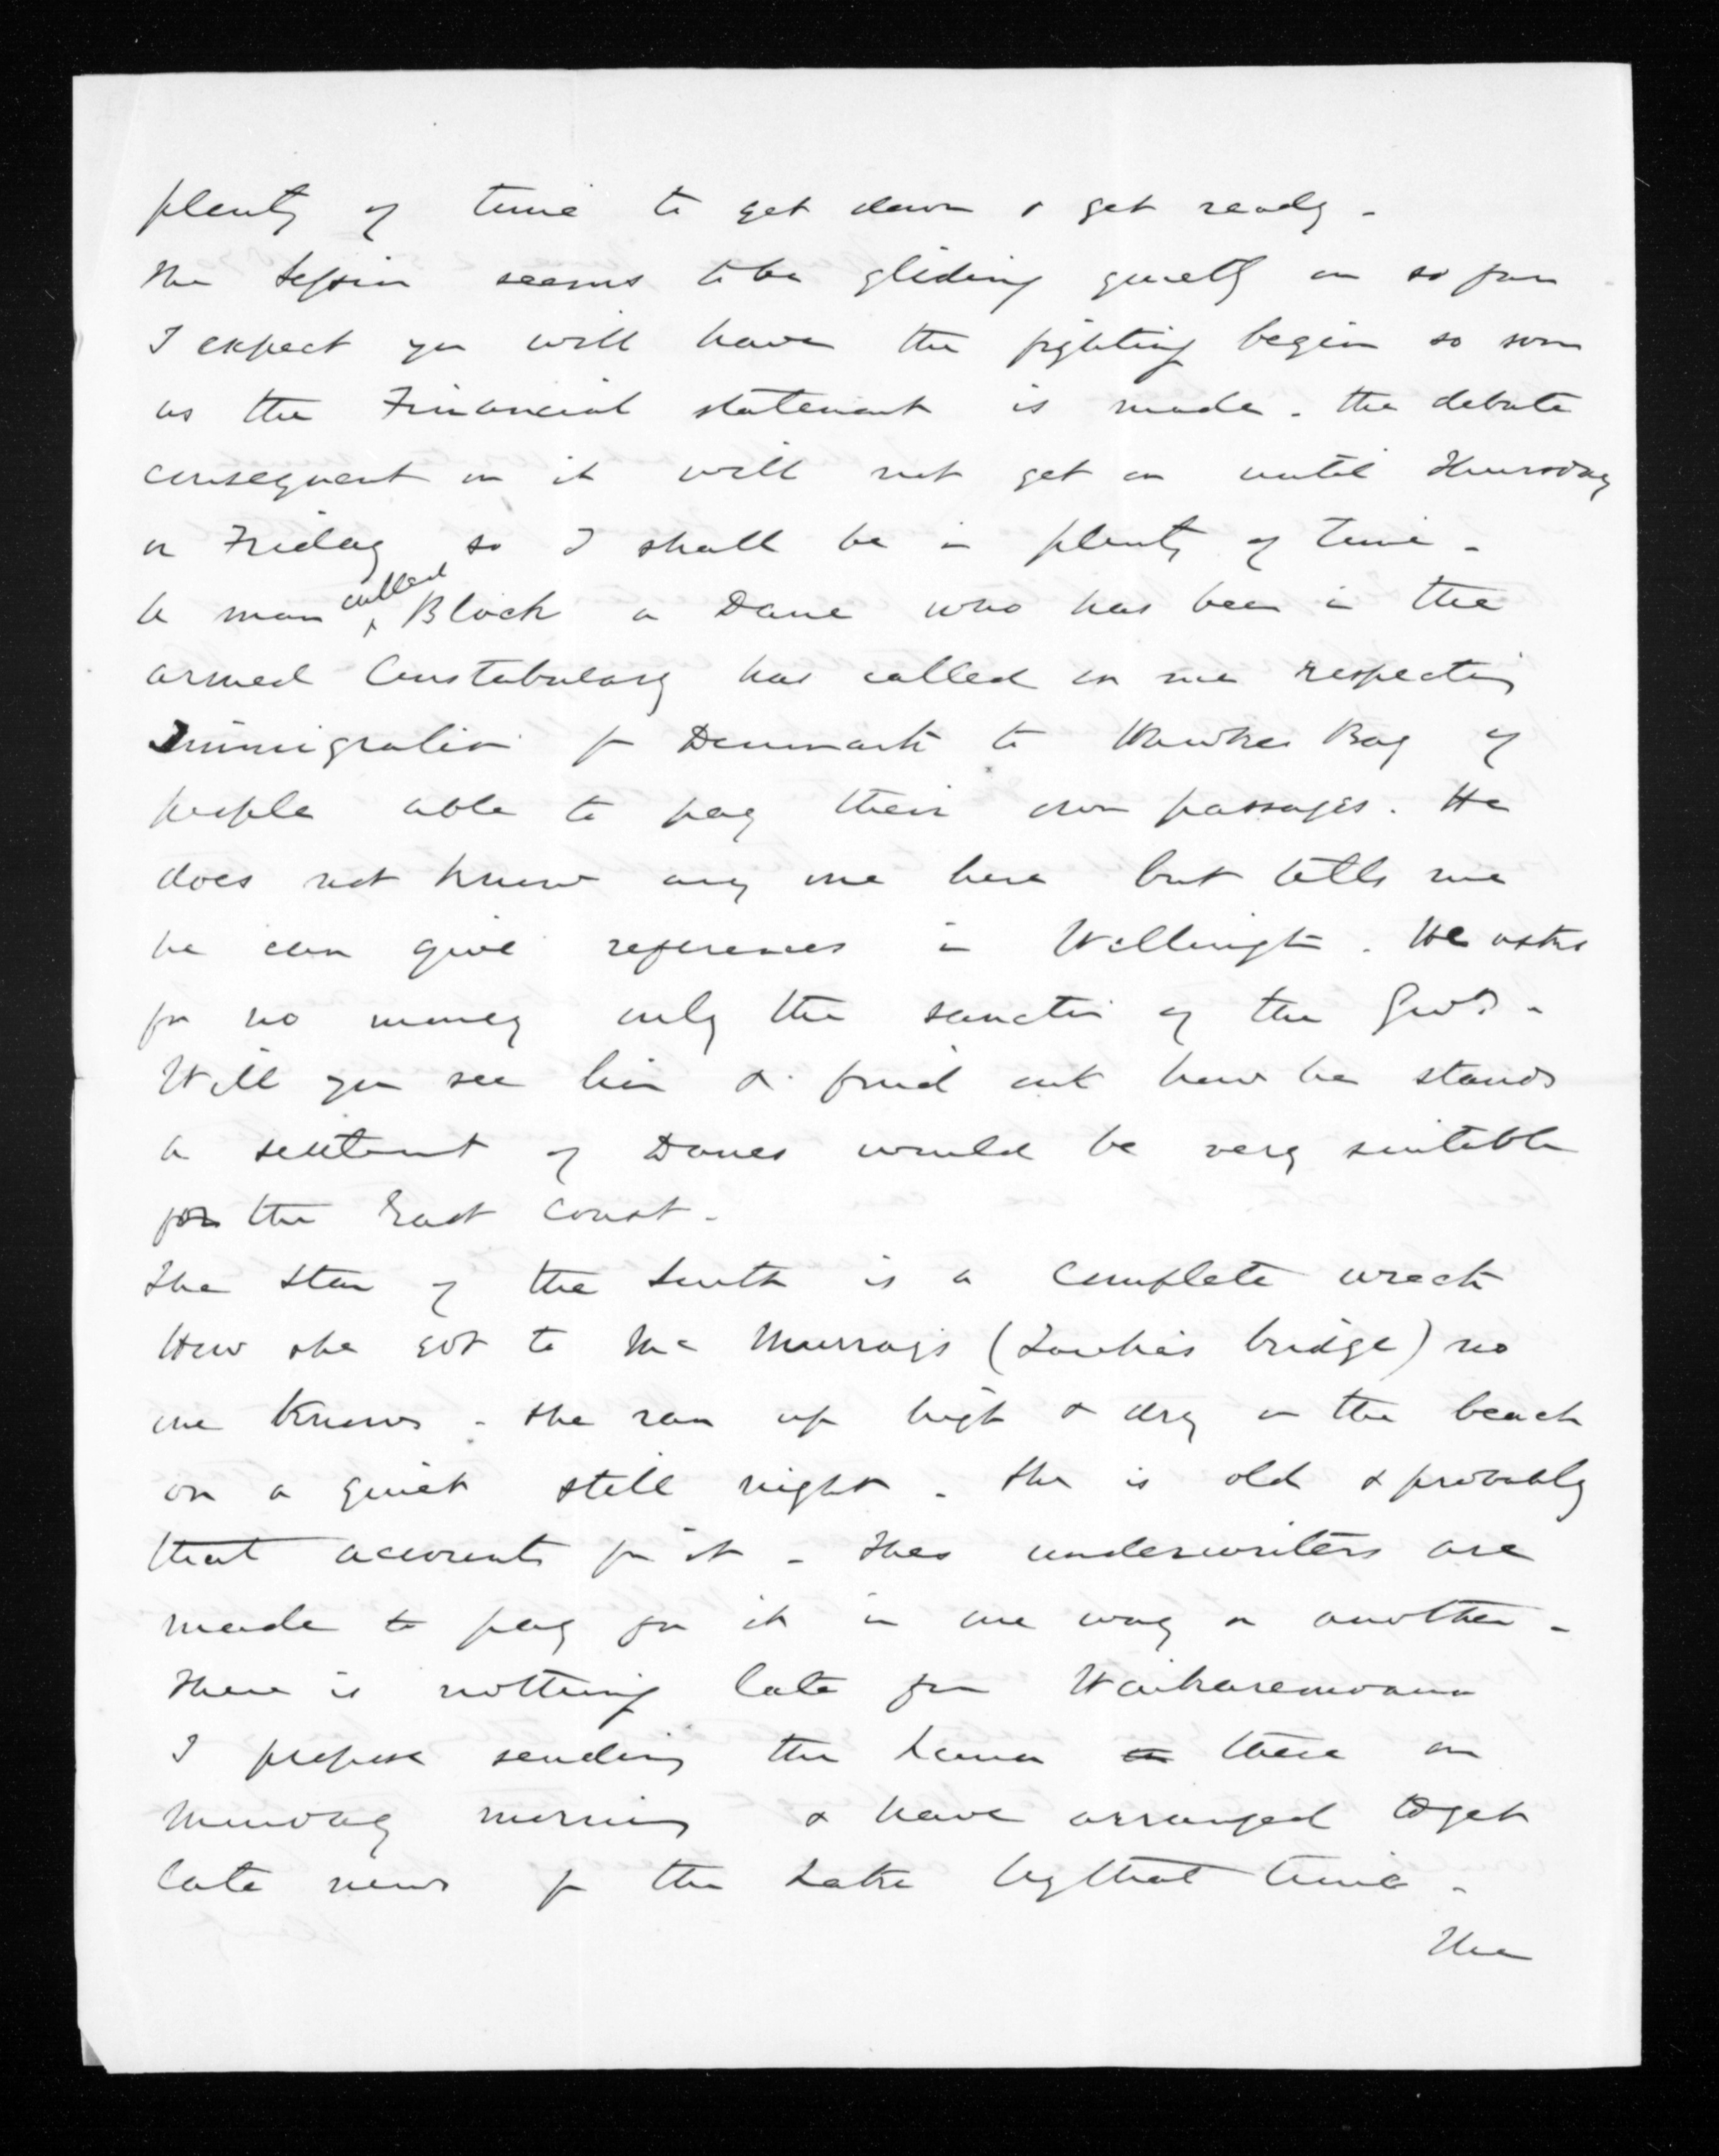 plenty of time to get down & get ready -
The Session seems to be gliding quietly on so far
I expect you will have the fighting begin so soon
as the Financial statement is made - the debate
consequent on it will not get on until Thursday
or Friday so I shall be in plenty of time -
A man called Block a Dane who has been in the
armed Constabulary has called on me respecting
Immigration fr Denmark to Hawkes Bay of
people able to pay their own passages. He
does not know any one here but tells me
he can give references in Wellington. He asks
for no money only the sanction of the Govt. -
Will you see him & find out how he stands
a settlement of Danes would be very suitable
for the East Coast -
The Star of the South is a complete wreck
How she got to McMurrays ( bridge) no
one knows - She ran up high & dry on the beach
on a quiet still night - She is old & probably
that accounts for it - The underwriters are
made to pay for it in one way or another -
There is nothing late from Waikaremoana
I propose sending the Luna there on
Monday morning & have arranged to get
late news fr the Lake by that time -
The